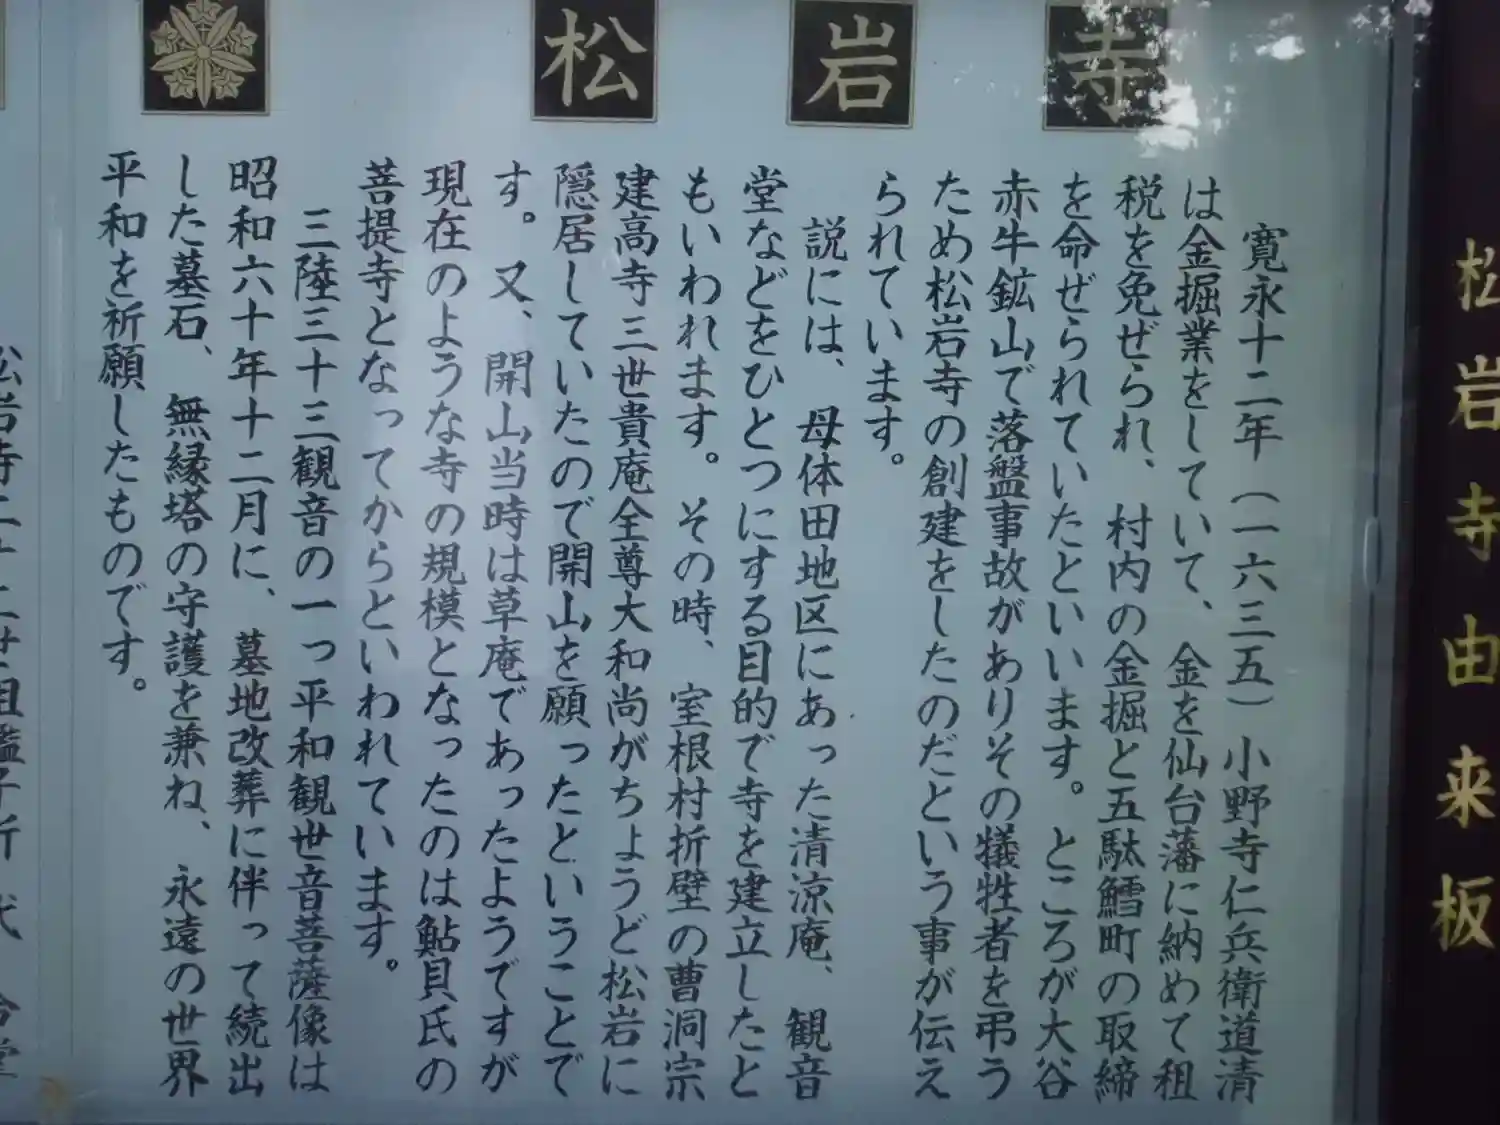 松岩寺由来板
松岩寺
寛永十二年(一六三五)小野寺仁兵衛道清
は金掘業をしていて、金を仙台藩に納めて租
税を免ぜられ、村内の金掘と五駄鱈町の取締
を命ぜられていたといいます。ところが大谷
赤牛鉱山で落盤事故がありその犠牲者を弔う
ため松岩寺の創建をしたのだという事が伝え
られています。
説には、母体田地区にあった清涼庵、観音
堂などをひとつにする目的で寺を建立したと
もいわれます。その時、室根村折壁の曹洞宗
建高寺三世貴庵全尊大和尚がちょうど松岩に
隠居していたので開山を願ったということで
す。又、開山当時は草庵であったようですが
現在のような寺の規模となったのは鮎貝氏の
菩提寺となってからといわれています。
三陸三十三観音の一っ平和観世音菩薩像は
昭和六十年十二月に、墓地改葬に伴って続出
した墓石、無縁塔の守護を兼ね、永遠の世界
平和を祈願したものです。